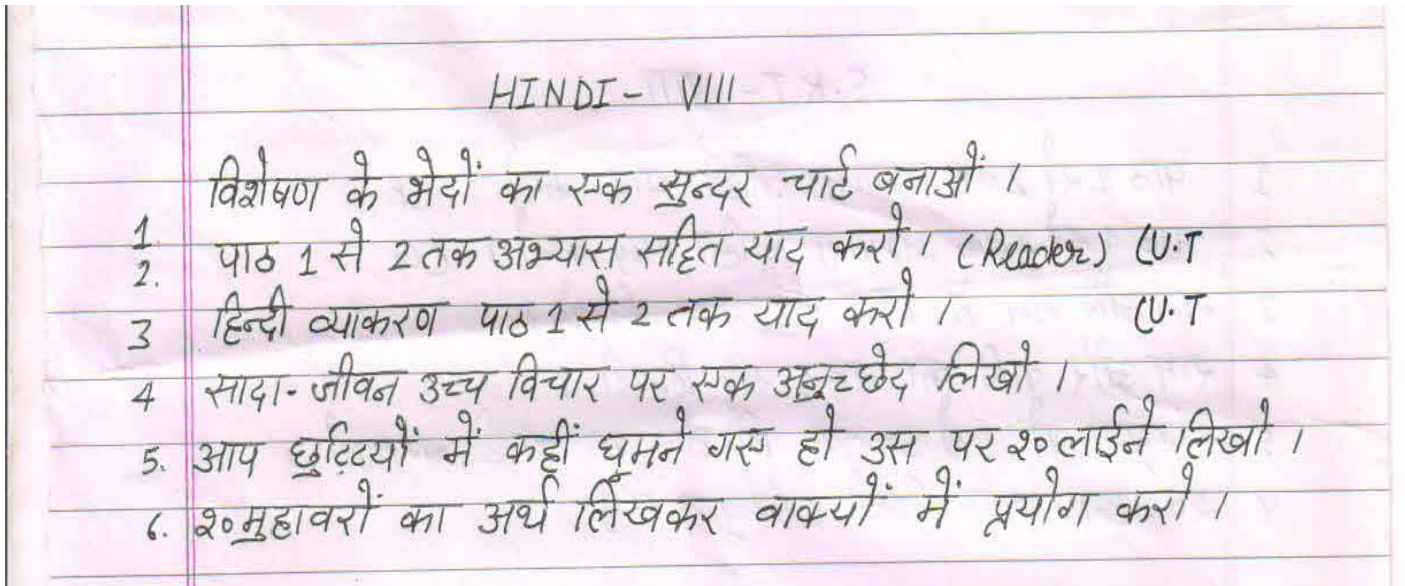 HINDI - VIII
विशेषण के भेदों का एक सुन्दर चार्ट बनाओं ।
1. पाठ 1 से 2 तक अभ्यास सहित याद करो । (Reader) (U.T
2.
3 हिन्दी व्याकरण पाठ 1 से 2 तक याद करो । (U.T
4 सादा - जीवन उच्च विचार पर एक अनुच्छेद लिखो ।
5. आप छुट्टियों में कहीं घूमने गए हो उस पर २० लाईने लिखो ।
6. २० मुहावरों का अर्थ लिखकर वाक्यों में प्रयोग करो ।